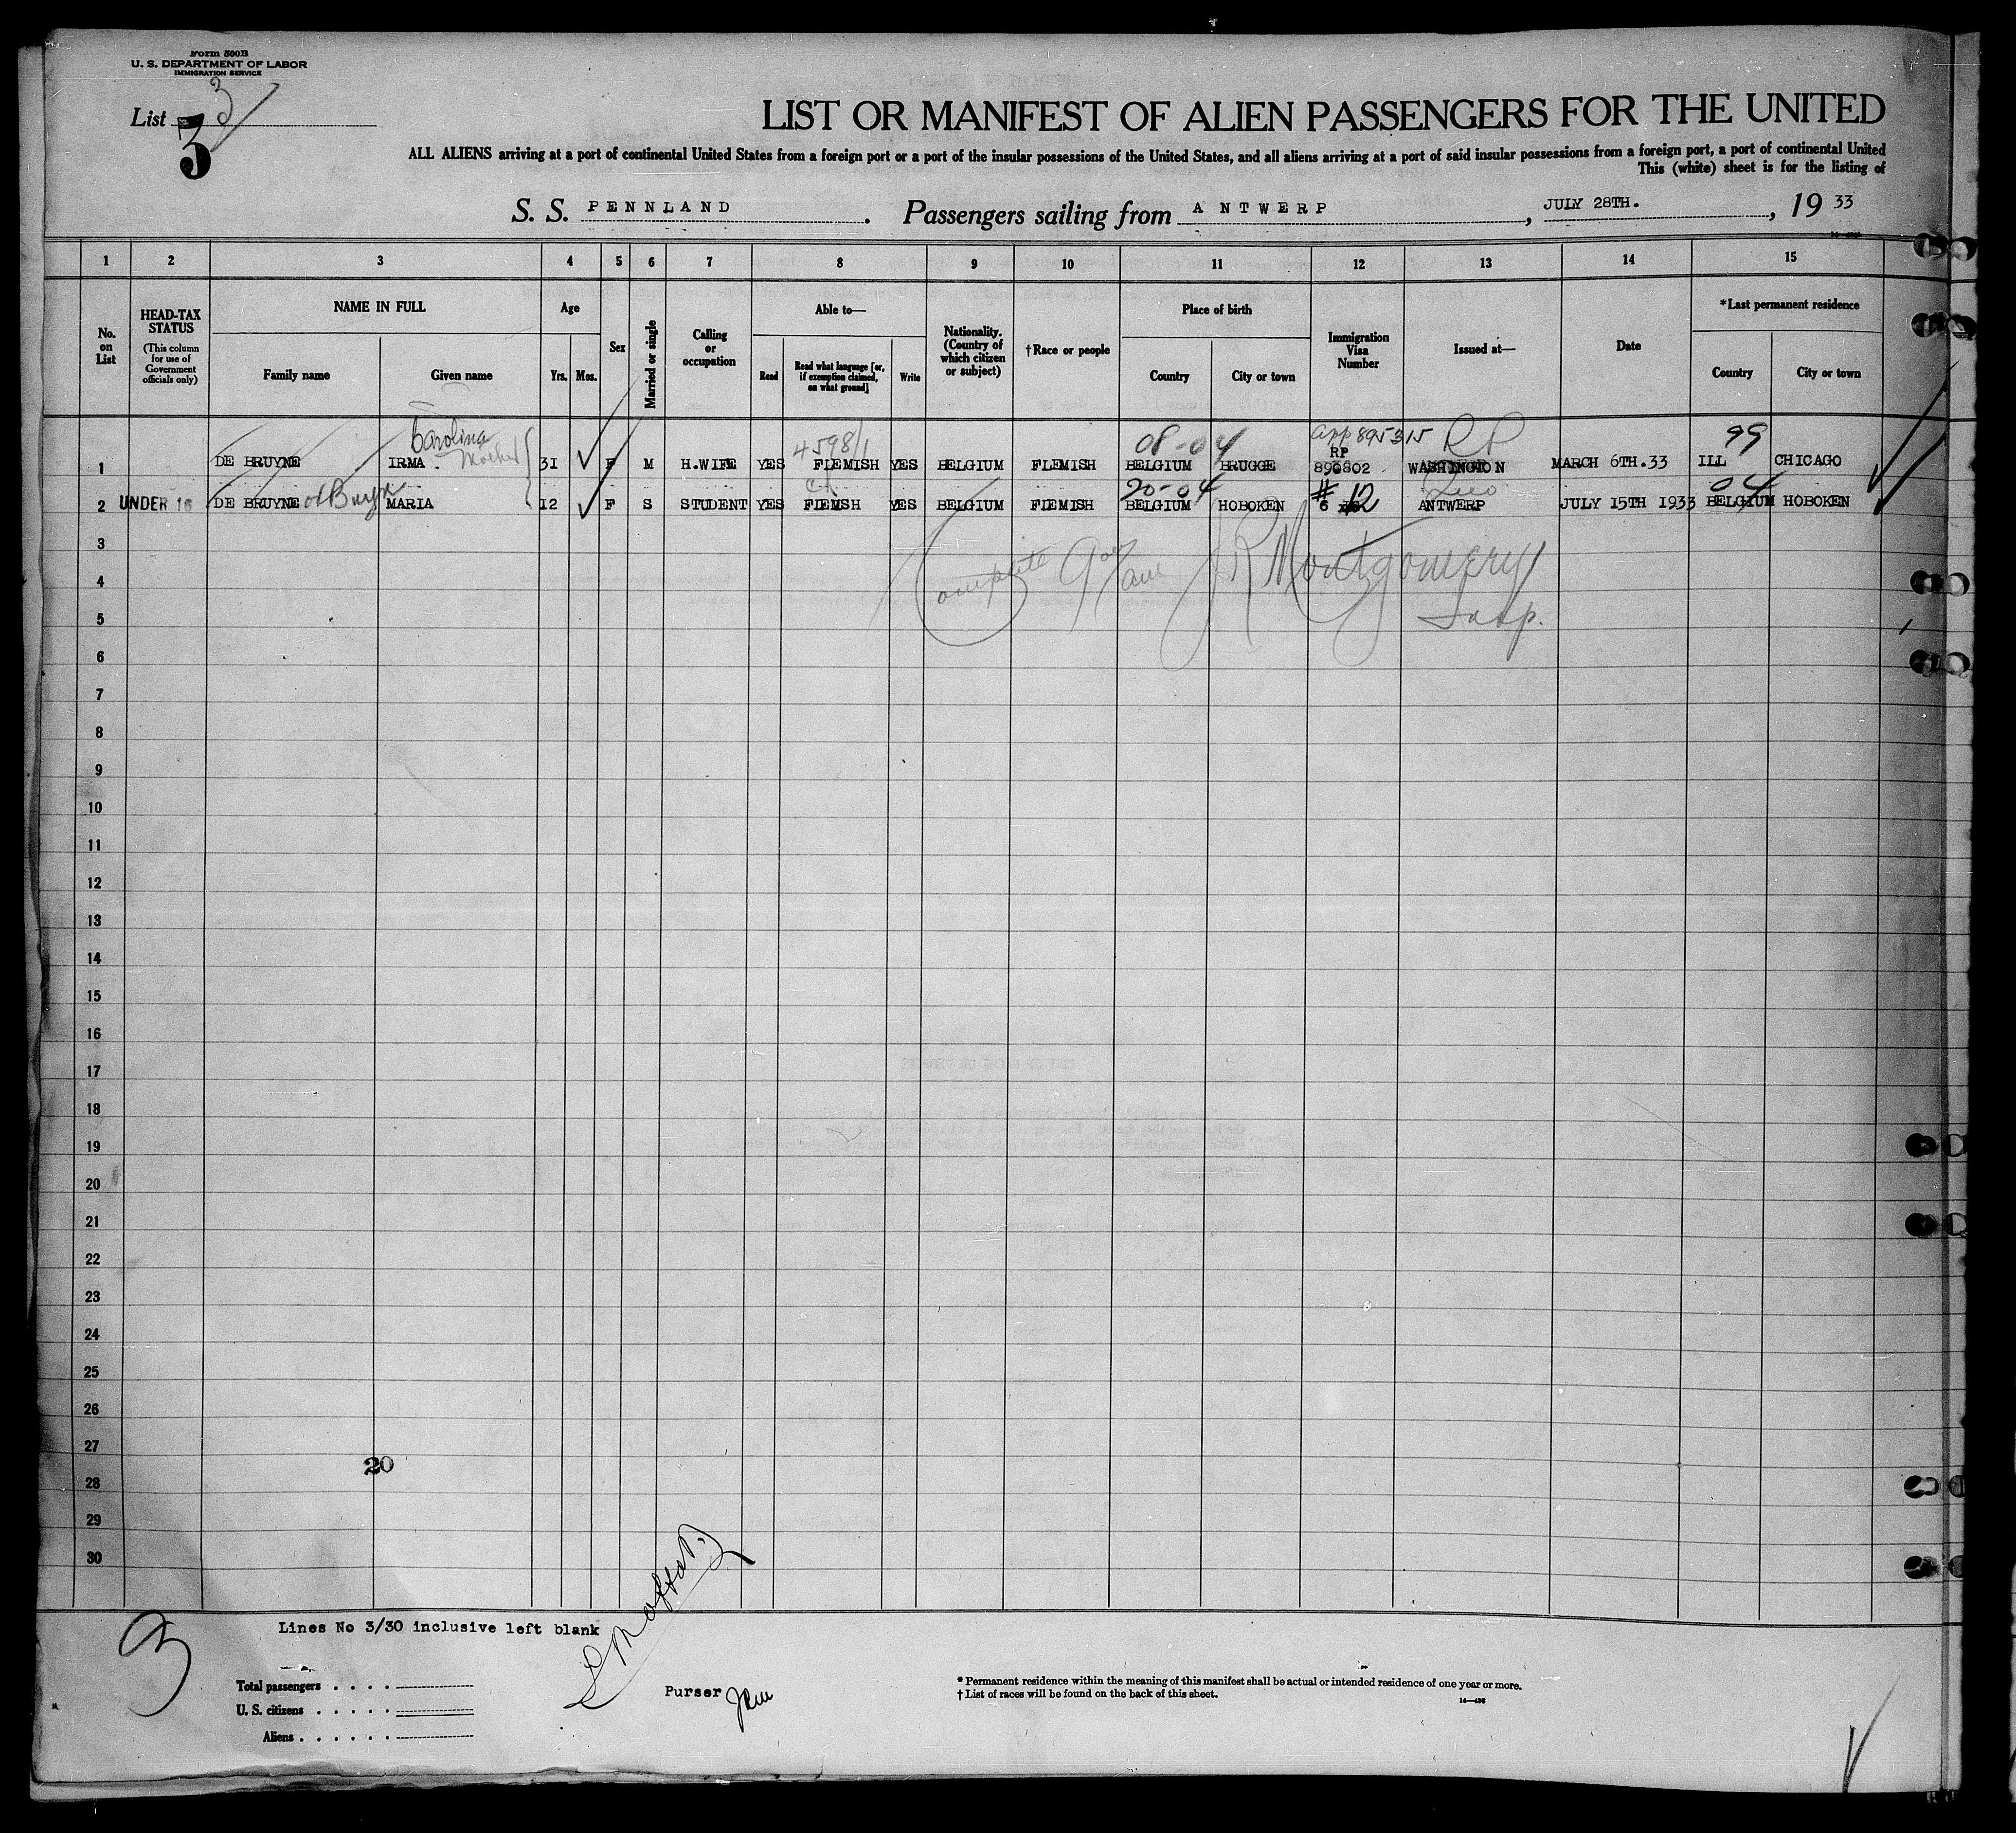 Form 500B
U. S. DEPARTMENT OF LABOR
IMMIGRATION SERVICE
List 3
3
LIST OR MANIFEST OF ALIEN PASSENGERS FOR THE UNITED
ALL ALIENS arriving at a port of continental United States from a foreign port or a port of the insular possessions of the United States, and all aliens arriving at a port of said insular possessions from a foreign port, a port of continental United
This (white) sheet is for the listing of
S. S. PENNLAND. Passengers sailing from ANTWERP, JULY 28TH., 19 33
1 2 3 4 5 6 7 8 9 10 11 12 13 14 15
No. on List
HEAD-TAX STATUS
(This column for use of Government officials only)
NAME IN FULL
Family name Given name
Age
Yrs. Mos.
Sex
Married or single
Calling or occupation
Able to—
Read
Read what language [or, if exemption claimed, on what ground]
Write
Nationality. (Country of which citizen or subject)
†Race or people
Place of birth
Country City or town
Immigration Visa Number
Issued at—
Date
*Last permanent residence
Country City or town
Carolina 4598/1 08-04 app 895315 RP 99
Mother RP
1 DE BRUYNE IRMA. 31 F M H.WIFE YES FLEMISH YES BELGIUM FLEMISH BELGIUM BRUGGE 890802 WASHINGTON MARCH 6TH.33 ILL CHICAGO
20-04 # 12 04
2 UNDER 16 DE BRUYNE MARIA 12 F S STUDENT YES FLEMSH YES BELGIUM FLEMISH BELGIUM HOBOKEN 6 ANTWERP JULY 15TH 1933 BELGIUM HOBOKEN
3
Complete JR Montgomery
4
5
Insp.
6
7
8
9
10
11
12
13
14
15
16
17
18
19
20
21
22
23
24
25
26
27
20
28
29
30
Lines No 3/30 inclusive left blank
3
Total passengers
U. S. citizens
Aliens
Purser
* Permanent residence within the meaning of this manifest shall be actual or intended residence of one year or more.
† List of races will be found on the back of this sheet.
14—436